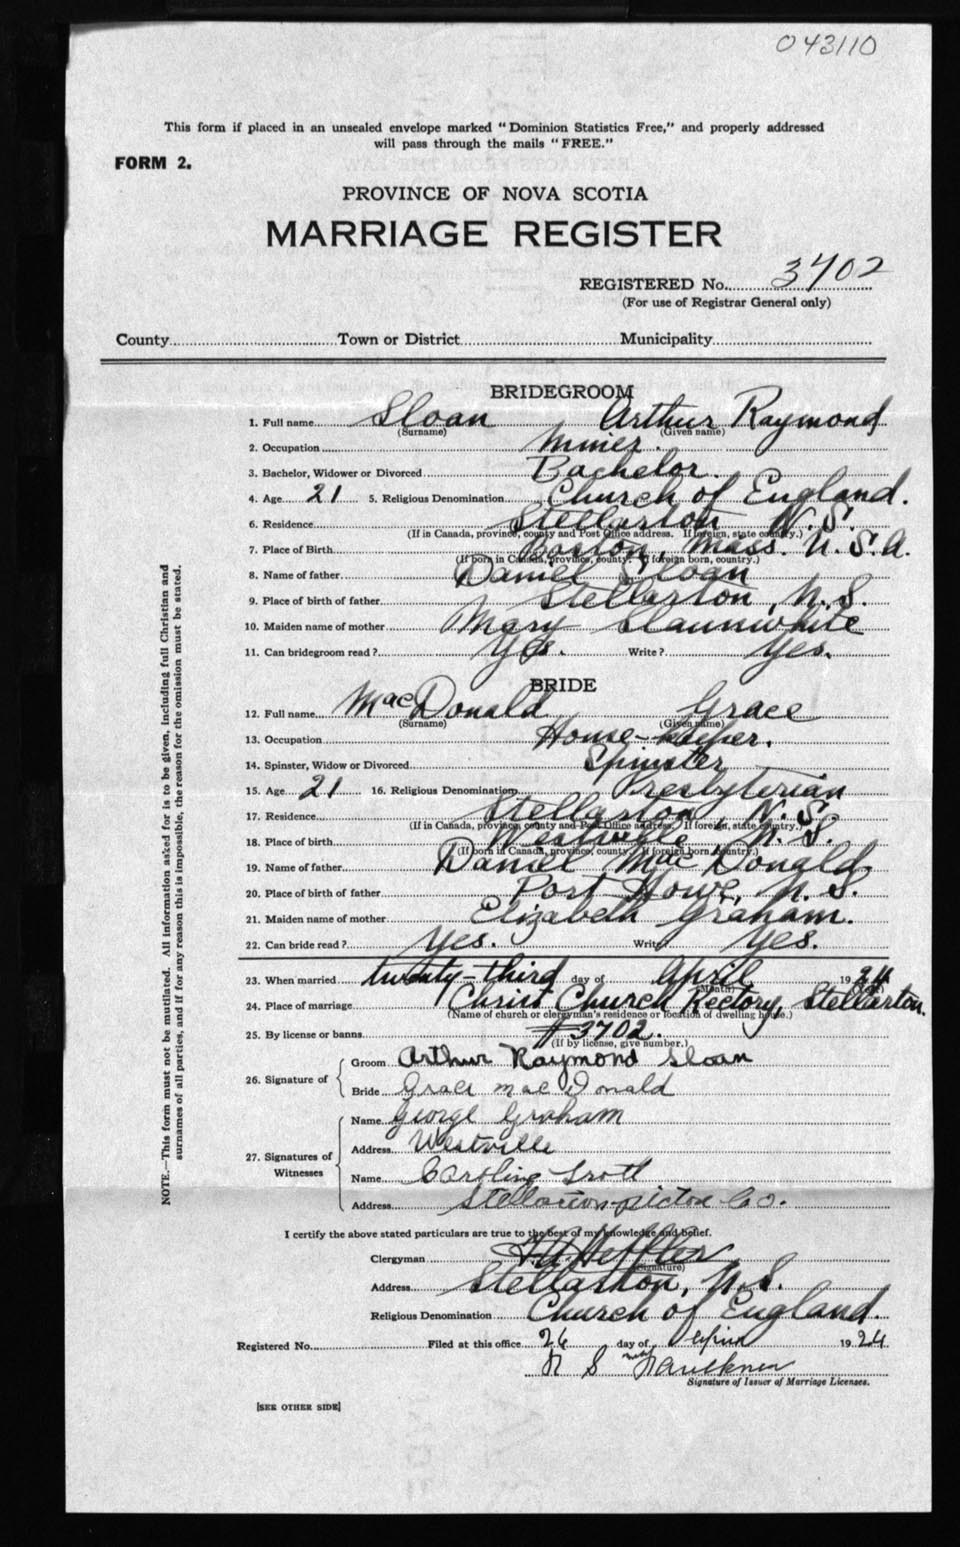 043110
This form if placed in an unsealed envelope marked "Dominion Statistics Free," and properly addressed
will pass through the mails "FREE."
FORM 2.
PROVINCE OF NOVA SCOTIA
MARRIAGE REGISTER
REGISTERED No. 3702
(For use of Registrar General only)
County Town or District Municipality
BRIDEGROOM
1. Full name Sloan Arthur Raymond
(Surname) (Given name)
2. Occupation Miner.
3. Bachelor, Widower or Divorced Bachelor.
4. Age 21 5. Religious Denomination Church of England.
6. Residence Stellarton N.S.
(If in Canada, province, county and Post Office address. If foreign, state country.)
7. Place of Birth Boston, Mass. U.S.A.
(If born in Canada, province, county. If foreign born, country.)
8. Name of father Daniel Sloan
9. Place of birth of father Stellarton, N.S.
10. Maiden name of mother Mary Slaunwhite
11. Can bridegroom read? Yes. Write? Yes.
BRIDE
12. Full name MacDonald Grace
(Surname) (Given name)
13. Occupation House-keeper.
14. Spinster, Widow or Divorced Spinster
15. Age 21 16. Religious Denomination Presbyterian
17. Residence Stellarton, N.S.
(If in Canada, province, county and Post Office address. If foreign, state country.)
18. Place of birth Westville N.S.
(If born in Canada, province, county. If foreign born, country.)
19. Name of father Daniel MacDonald,
20. Place of birth of father Port Howe, N.S.
21. Maiden name of mother Elizabeth Graham.
22. Can bride read? Yes. Write Yes.
23. When married twenty-third day of April 1924
(Month)
24. Place of marriage Christ Church Rectory, Stellarton.
(Name of church or clergyman's residence or location of dwelling house.)
25. By license or banns #3702.
(If by license, give number.)
26. Signature of
Groom Arthur Raymond Sloan
Bride Grace MacDonald
27. Signatures of Witnesses
Name George Graham
Address Westville
Name Caroline Trott
Address Stellarton Pictou Co.
I certify the above stated particulars are true to the best of my knowledge and belief.
Clergyman
(Signature)
Address Stellarton, N.S.
Religious Denomination Church of England.
Registered No. Filed at this office 26 day of April 1924
Faulkner
Signature of Issuer of Marriage Licenses.
[SEE OTHER SIDE]
NOTE.—This form must not be mutilated. All information asked for is to be given, including full Christian and
surnames of all parties, and if for any reason this is impossible, the reason for the omission must be stated.